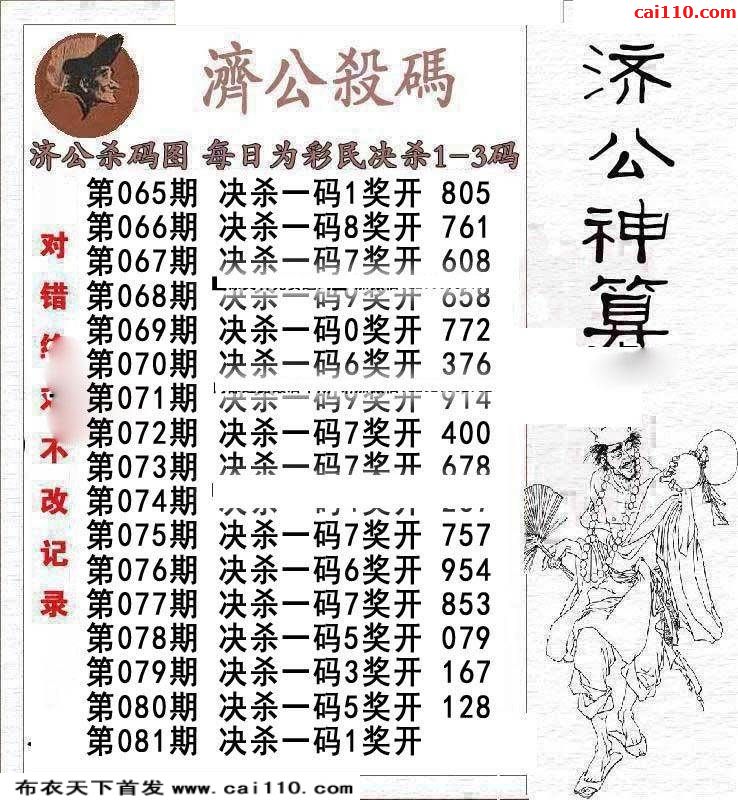 cai110.com
濟公殺碼
济公神算
济公杀码图 每日为彩民决杀1-3码
对错绝对不改记录
第065期 决杀一码1奖开 805
第066期 决杀一码8奖开 761
第067期 决杀一码7奖开 608
第068期 决杀一码9奖开 658
第069期 决杀一码0奖开 772
第070期 决杀一码6奖开 376
第071期 决杀一码9奖开 914
第072期 决杀一码7奖开 400
第073期 决杀一码7奖开 678
第074期
第075期 决杀一码7奖开 757
第076期 决杀一码6奖开 954
第077期 决杀一码7奖开 853
第078期 决杀一码5奖开 079
第079期 决杀一码3奖开 167
第080期 决杀一码5奖开 128
第081期 决杀一码1奖开
布衣天下首发 www.cai110.com